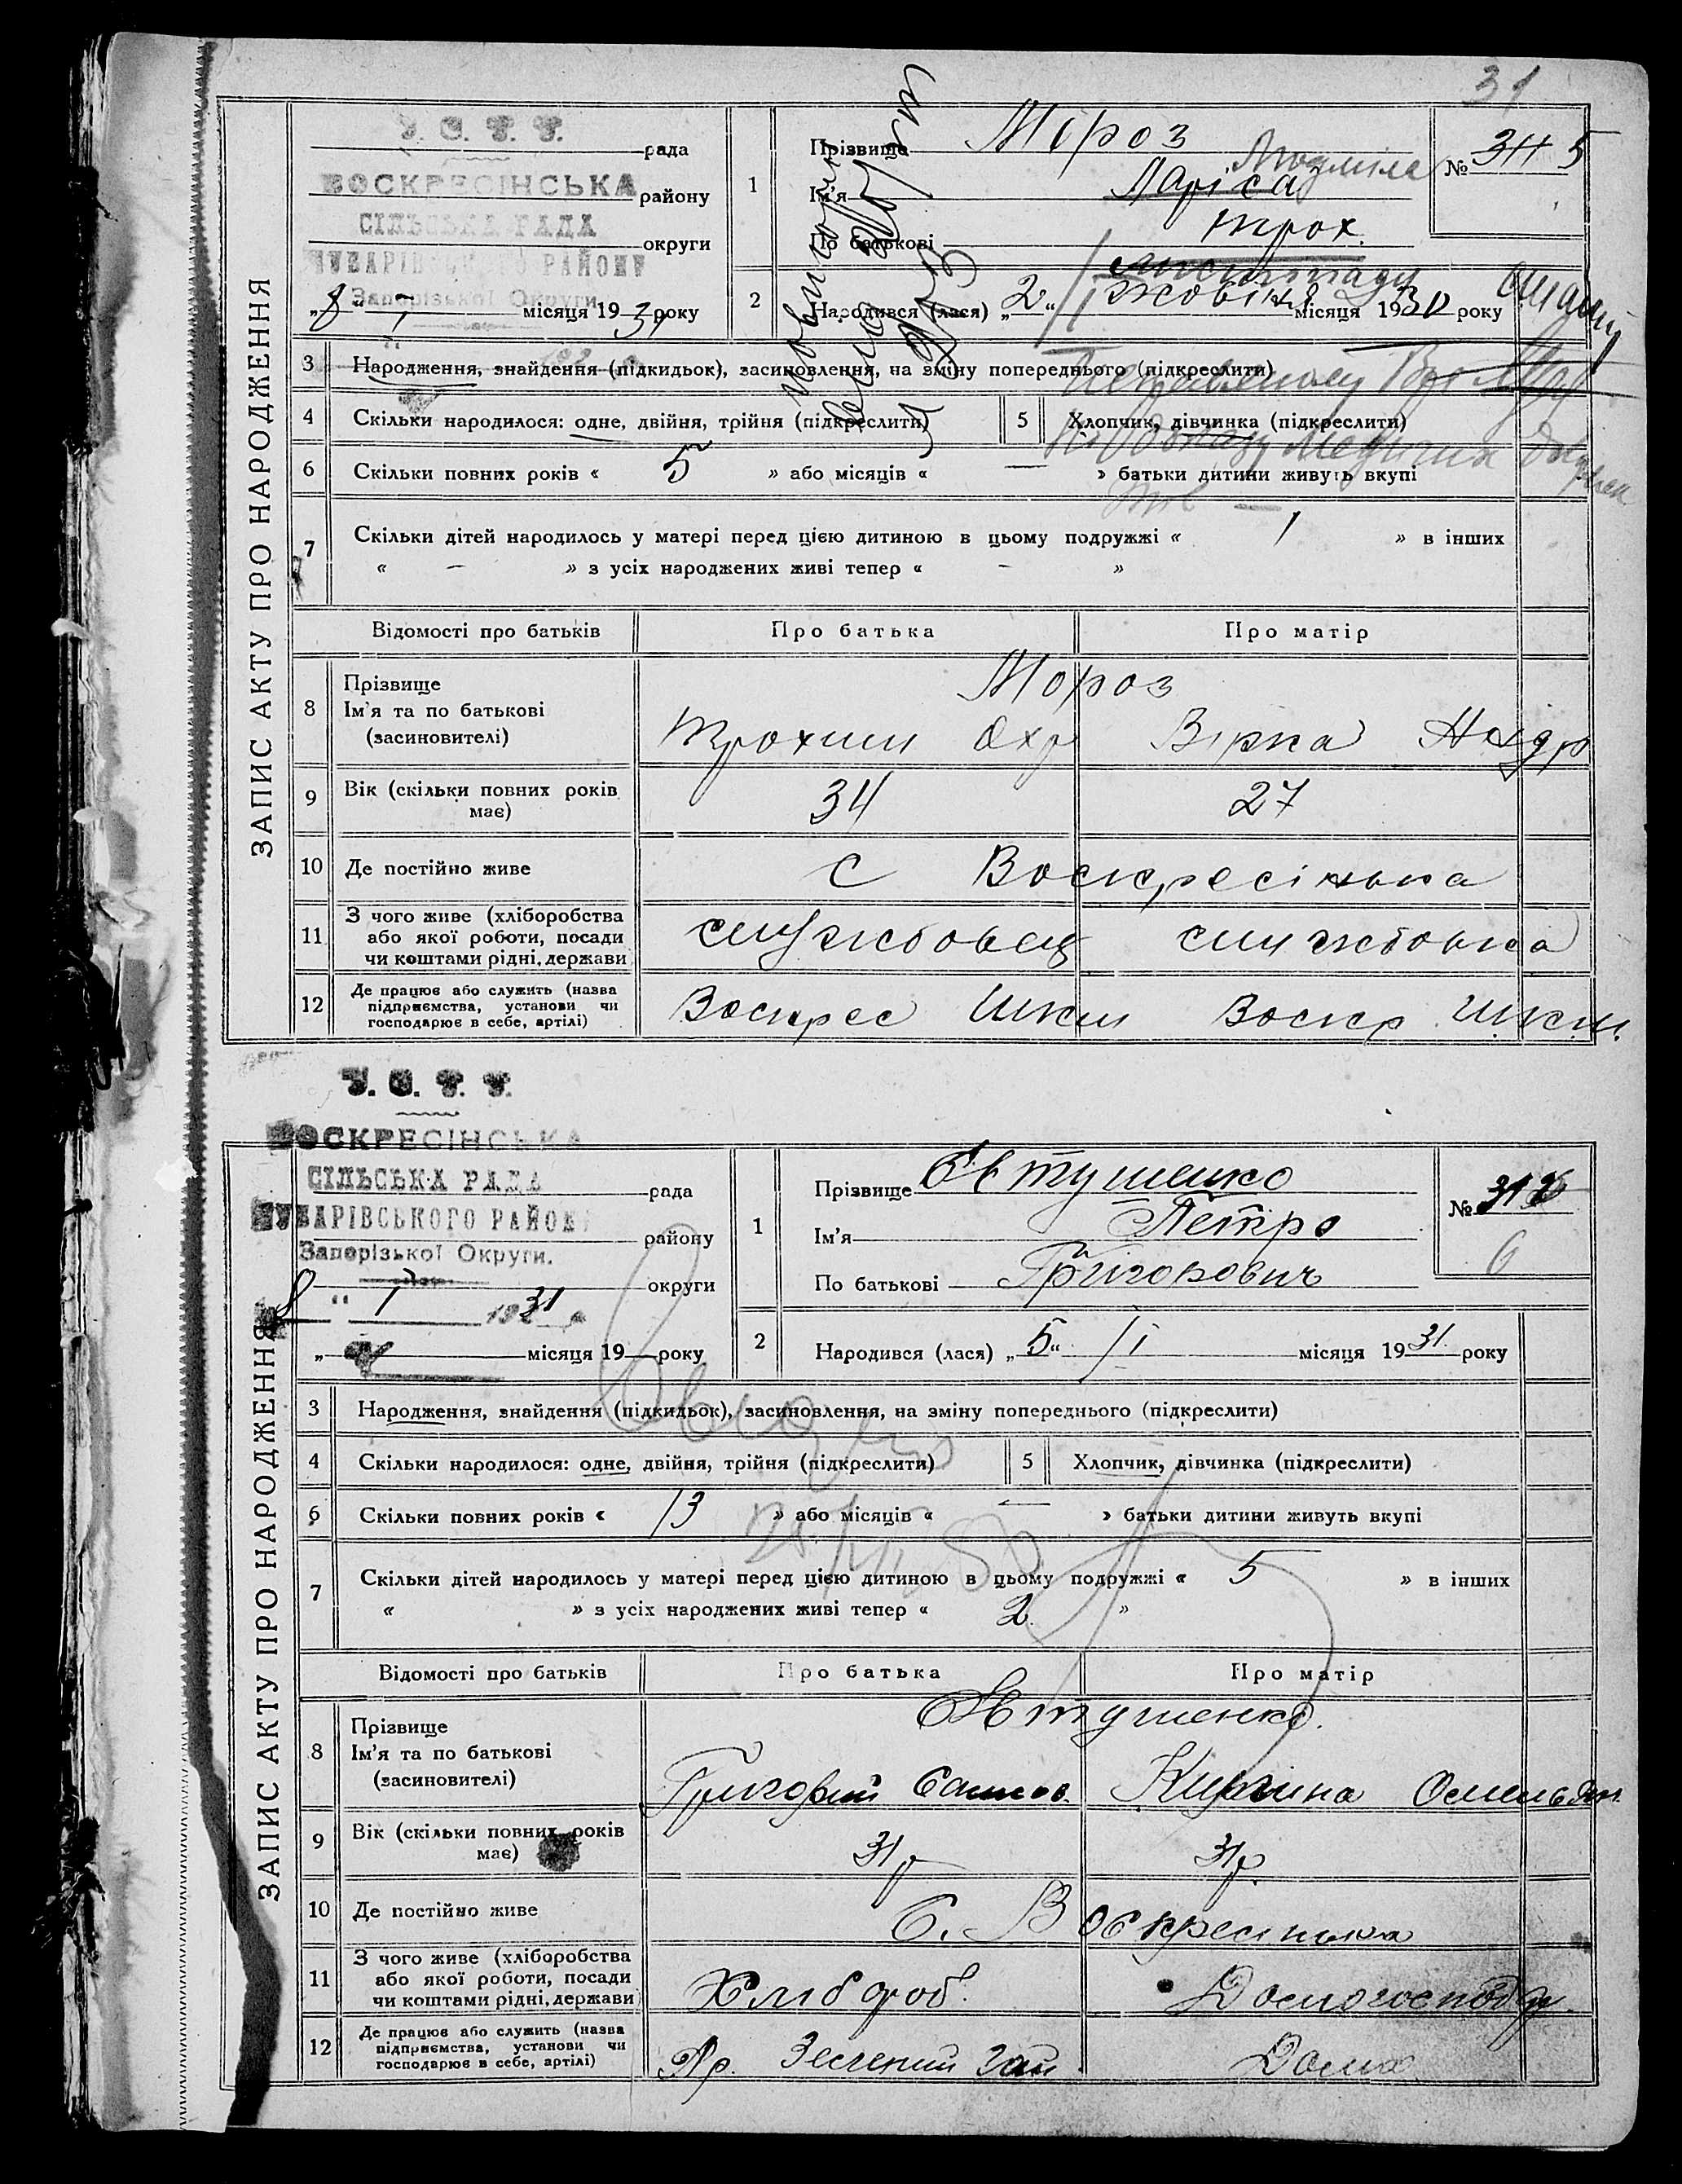 31
У. С. Р. Р.
рада
ВОСКРЕСІНСЬКА
району
СІЛЬСЬКА РАДА
округи
ЧУБАРІВСЬКОГО РАЙОНУ
Запорізької Округи
„8“ I місяця 1931 року
1
Прізвище Мороз
Людміла
Ім'я Ларіса
По батькові Трох.
№ 5
2
Народився (лася) „2“ листопада жовтня місяця 1930 року
ЗАПИС АКТУ ПРО НАРОДЖЕННЯ
3 Народження, знайдення (підкидьок), засиновлення, на зміну попереднього (підкреслити)
4 Скільки народилося: одне, двійня, трійня (підкреслити)
5 Хлопчик, дівчинка (підкреслити)
6 Скільки повних років « 5 » або місяців « — » батьки дитини живуть вкупі
7 Скільки дітей народилось у матері перед цією дитиною в цьому подружжі « 1 » в інших
« — » з усіх народжених живі тепер « — »
Відомості про батьків Про батька Про матір
8 Прізвище Мороз
Ім'я та по батькові Трохим Охр Вірка
(засиновителі)
9 Вік (скільки повних років має) 34 27
10 Де постійно живе С Воскресінька
11 З чого живе (хліборобства
або якої роботи, посади службовец службовка
чи коштами рідні, держави
12 Де працює або служить (назва
підприємства, установи чи Воскрес Шкл Воскр. Шкл.
господарює в себе, артілі)
У. С. Р. Р.
ВОСКРЕСІНСЬКА
СІЛЬСЬКА РАДА
рада
ЧУБАРІВСЬКОГО РАЙОНУ
району
Запорізької Округи.
округи
8 “ I 1931
„ місяця 19 року
1
Прізвище Євтушенко
Ім'я Петро
По батькові Грігорович
№
6
2
Народився (лася) „5“ I місяця 1931 року
ЗАПИС АКТУ ПРО НАРОДЖЕННЯ
3 Народження, знайдення (підкидьок), засиновлення, на зміну попереднього (підкреслити)
4 Скільки народилося: одне, двійня, трійня (підкреслити)
5 Хлопчик, дівчинка (підкреслити)
6 Скільки повних років « 13 » або місяців « — » батьки дитини живуть вкупі
7 Скільки дітей народилось у матері перед цією дитиною в цьому подружжі « 5 » в інших
« » з усіх народжених живі тепер « 2 »
Відомості про батьків Про батька Про матір
8 Прізвище Євтушенко.
Ім'я та по батькові
(засиновителі) Григорий Омельян.
9 Вік (скільки повних років має) 31 р 31 р.
10 Де постійно живе С. Воскресінька
11 З чого живе (хліборобства
або якої роботи, посади Хлібороб. Домогосподар.
чи коштами рідні, держави
12 Де працює або служить (назва
підприємства, установи чи Ар. Зелений Гай. Дома
господарює в себе, артілі)